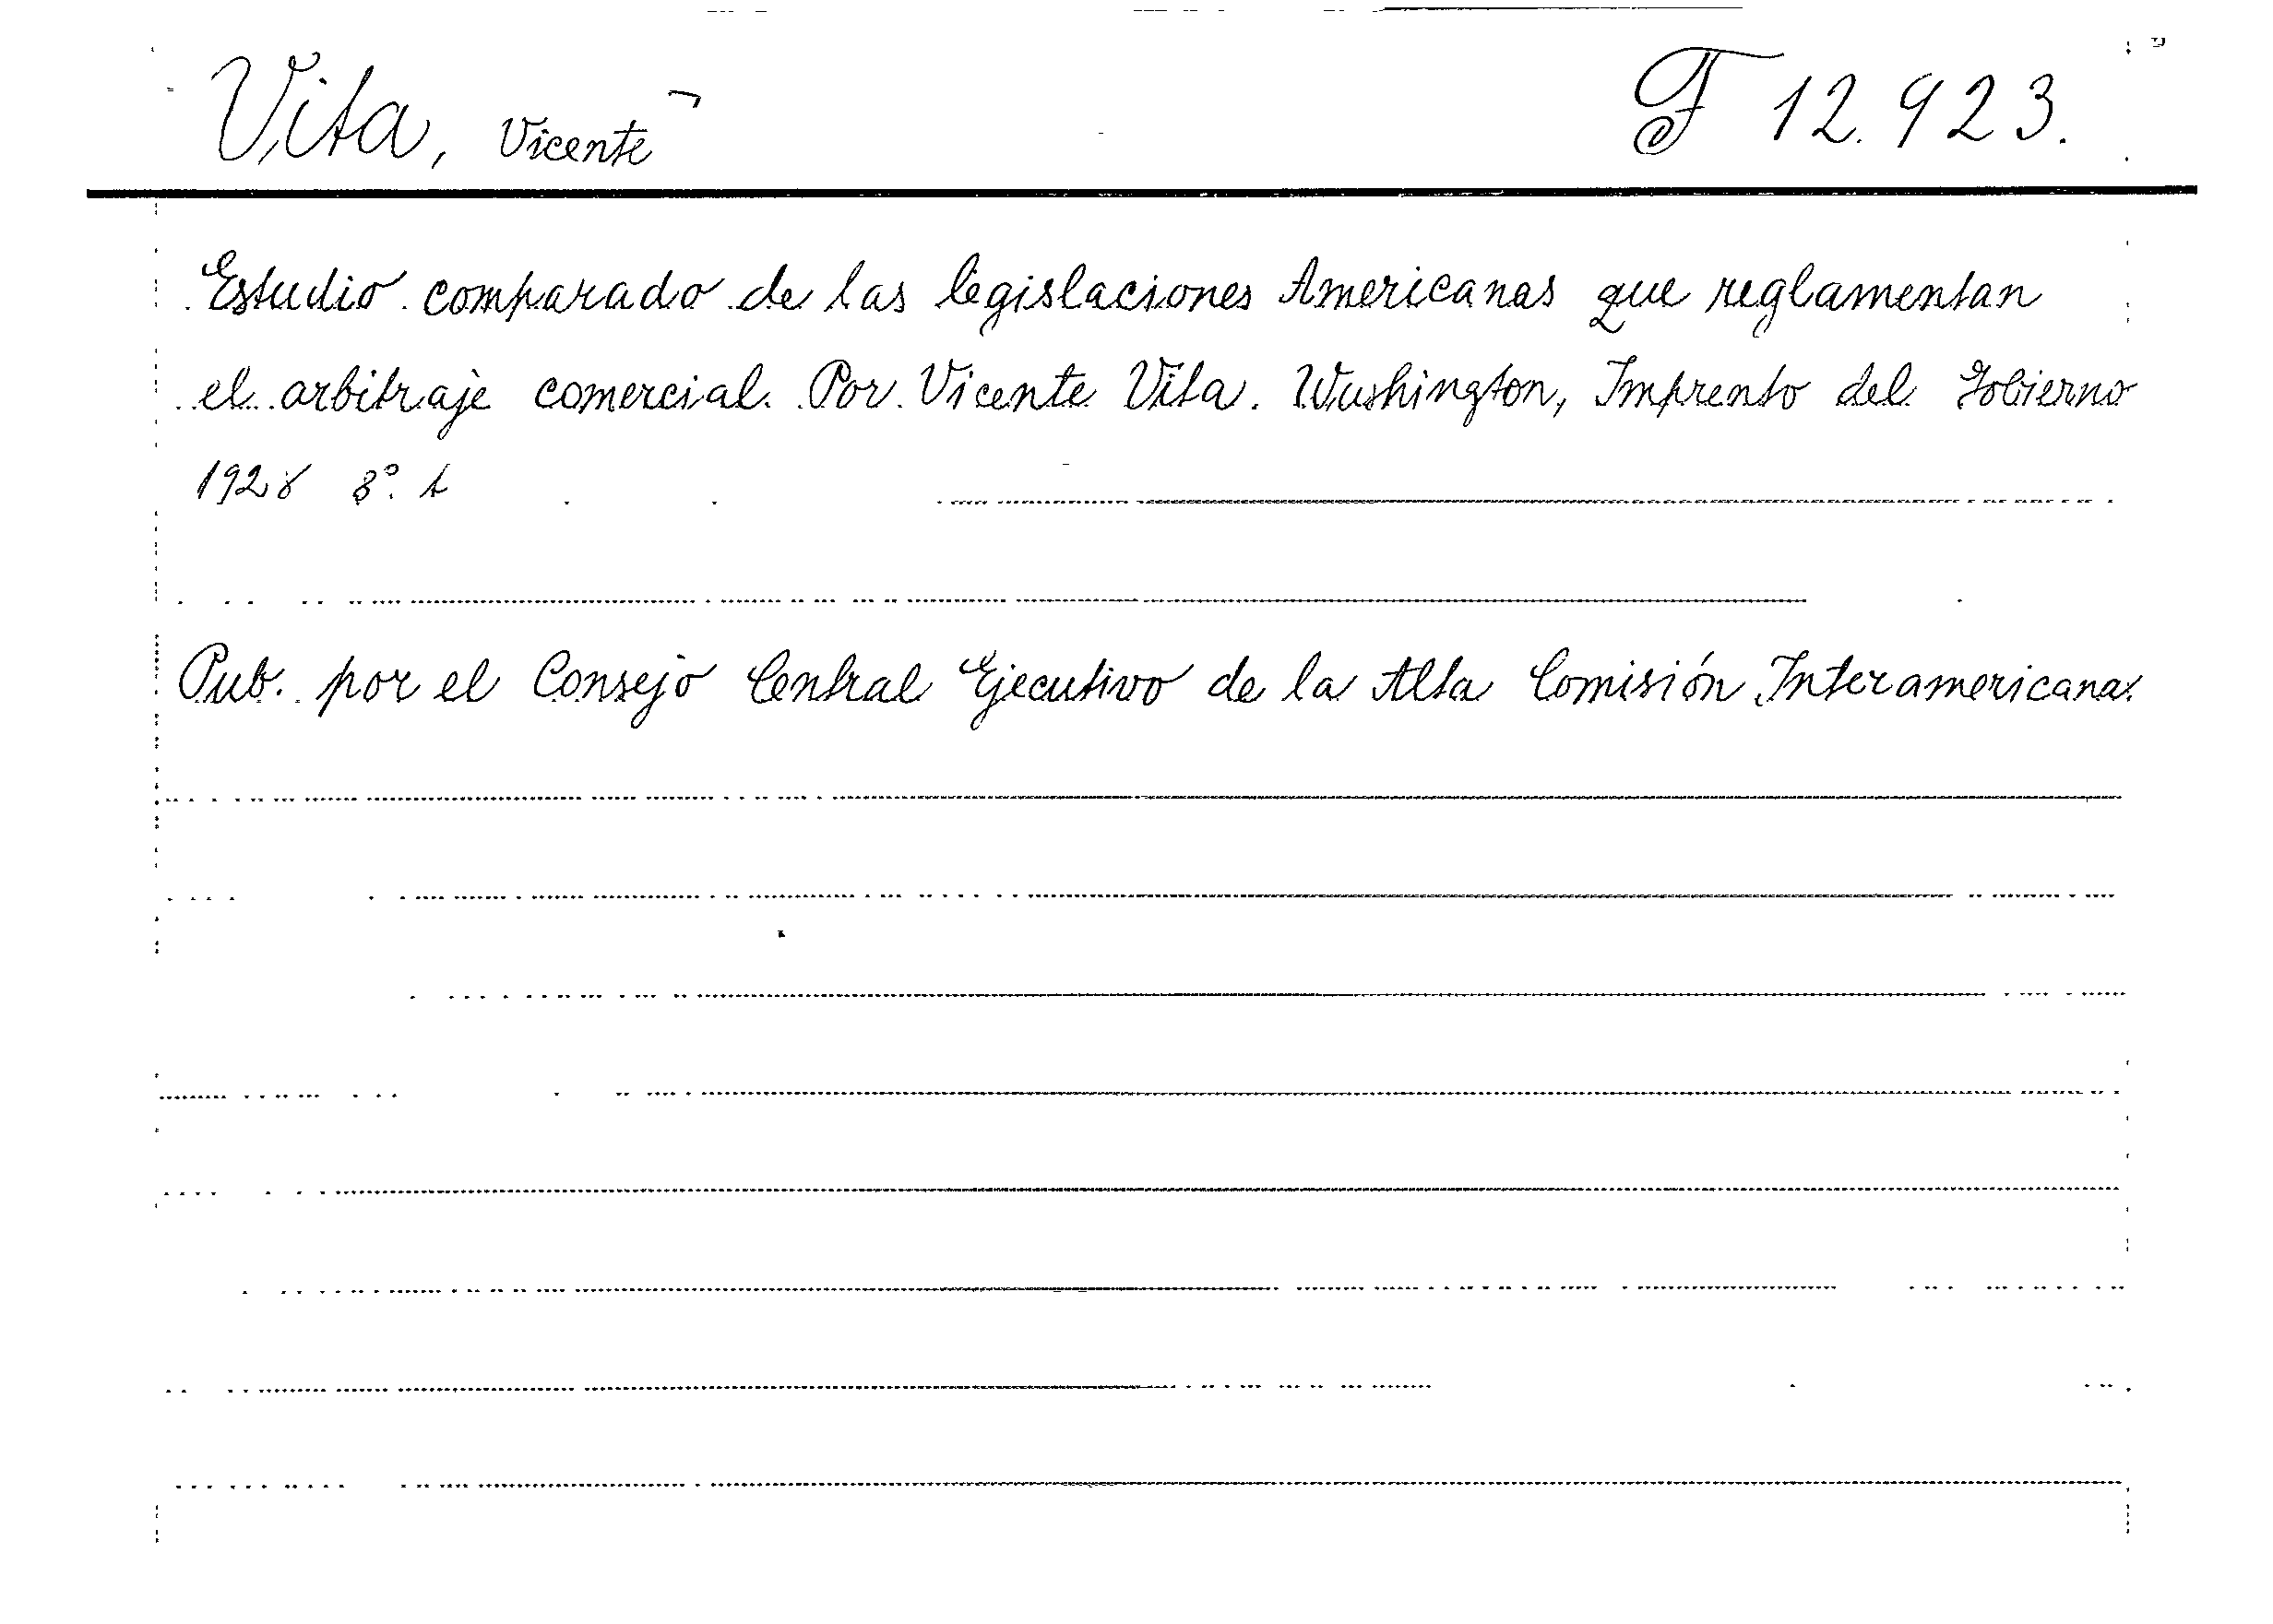 Vita, Vicente F 12.923.
Estudio comparado de las legislaciones Americanas que reglamentan
el arbitraje comercial. Por Vicente Vita. Washington, Imprento del Gobierno
1928 8º. t
Pub. por el Consejo Central Ejecutivo de la Alta Comisión Interamericana.